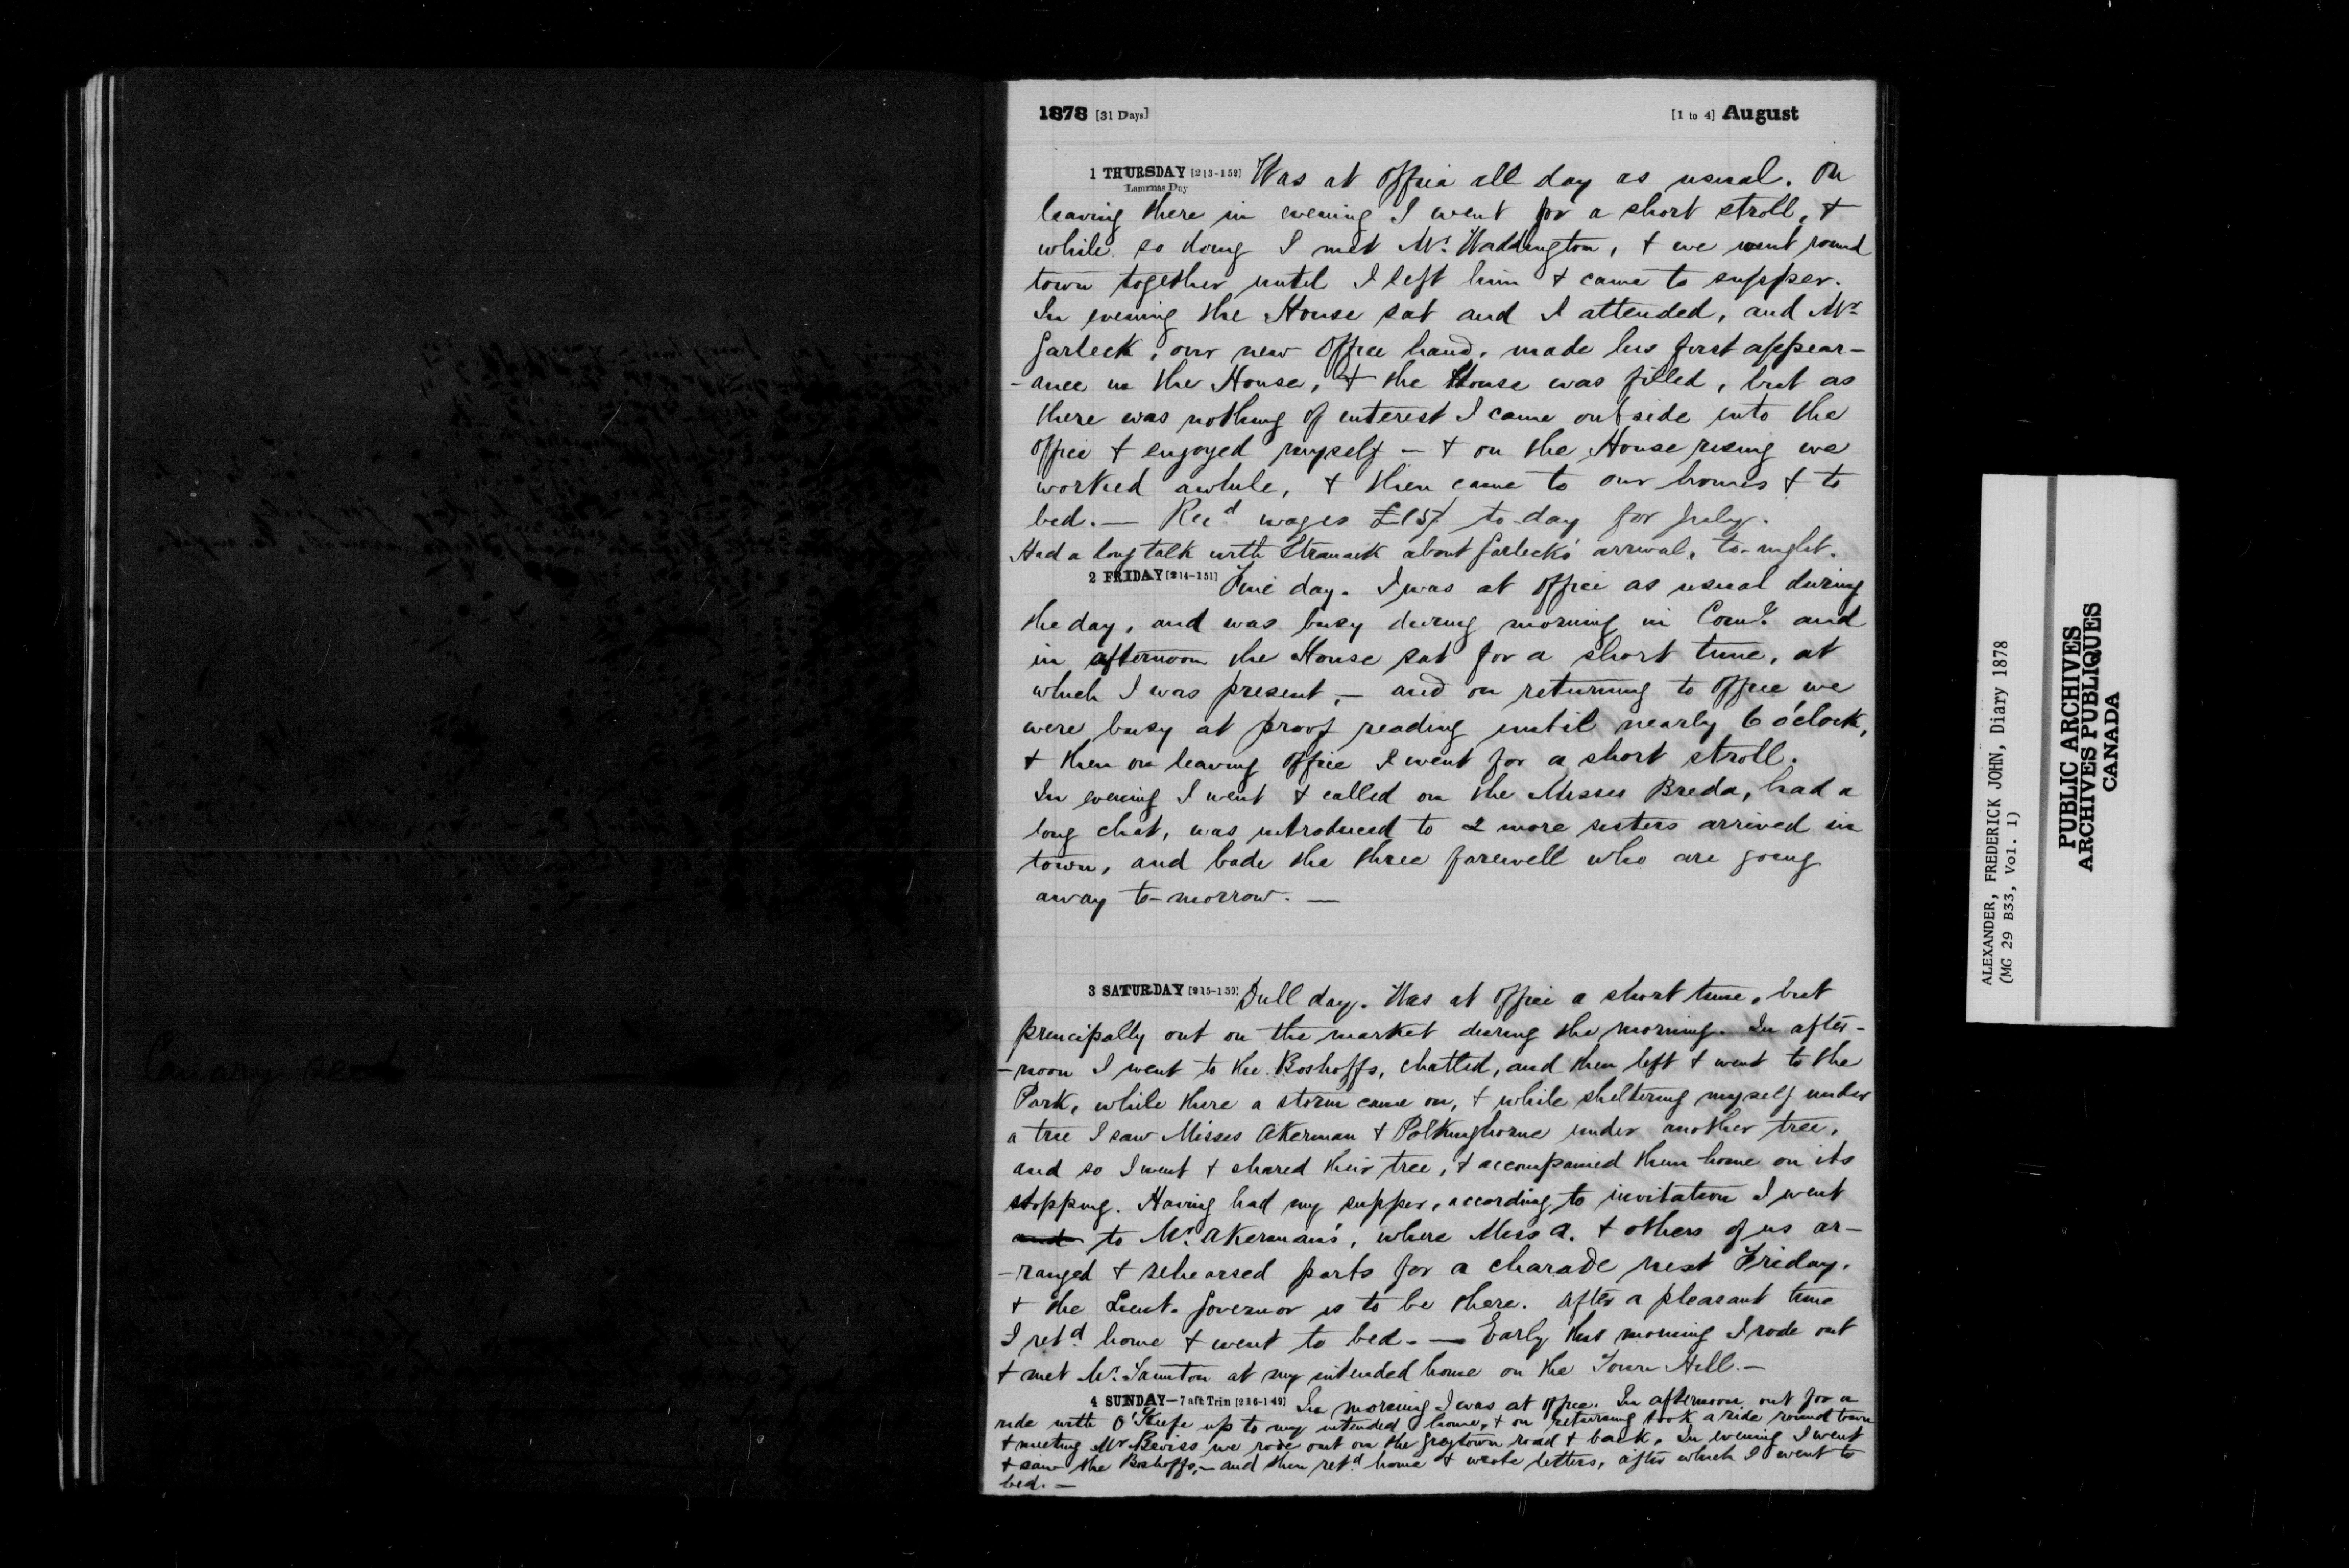 1878 [31 Days] [1 to 4] August
1 THURSDAY [213-152] Was at Office all day as usual. On
Lammas Day
leaving there in evening I went for a short stroll, &
while so doing I met Mr. Waddington, & we went round
town together until I left him & came to supper.
In evening the House sat and I attended, and Mr
Garlick, our new Office hand, made his first appear-
-ance in the House, & the House was filled, but as
there was nothing of interest I came outside into the
Office & enjoyed myself — & on the House rising we
worked awhile, & then came to our homes & to
bed. — Recd wages £15/ to-day for July.
Had a long talk with about Garlick's arrival, to-night.
2 FRIDAY [214-151] Fine day. I was at Office as usual during
the day, and was busy during morning in Comee. and
in afternoon the House sat for a short time, at
which I was present, — and on returning to Office we
were busy at proof reading until nearly 6 o'clock,
& then on leaving Office I went for a short stroll.
In evening I went & called on the Misses Breda, had a
long chat, was introduced to 2 more sisters arrived in
town, and bade the three farewell who are going
away to-morrow. —
3 SATURDAY [215-150] Dull day. Was at Office a short time, but
principally out on the market during the morning. In after-
-noon I went to the Boshoffs, chatted, and then left & went to the
Park, while there a storm came on, & while sheltering myself under
a tree I saw Misses Akerman & Polkinghorne under another tree,
and so I went & shared their tree, & accompanied them home on its
stopping. Having had my supper, according to invitation I went
and to Mr. Akerman's, where Miss A. & others of us ar-
-ranged & rehearsed parts for a charade next Friday.
& the Lieut. Governor is to be there. After a pleasant time
I retd. home & went to bed. — Early this morning I rode out
& met Mr. Taunton at my intended home on the Town Hill. —
4 SUNDAY—7 aft Trin [216-149] In morning I was at Office. In afternoon out for a
ride with O'Keefe up to my intended home, & on returning took a ride round town
& meeting Mr we rode out on the Greytown road & back. In evening I went
& saw the Boshoffs, — and then retd. home & wrote letters, after which I went to
bed. —
Canary seed
ALEXANDER, FREDERICK JOHN, Diary 1878
(MG 29 B33, Vol. 1)
PUBLIC ARCHIVES
ARCHIVES PUBLIQUES
CANADA